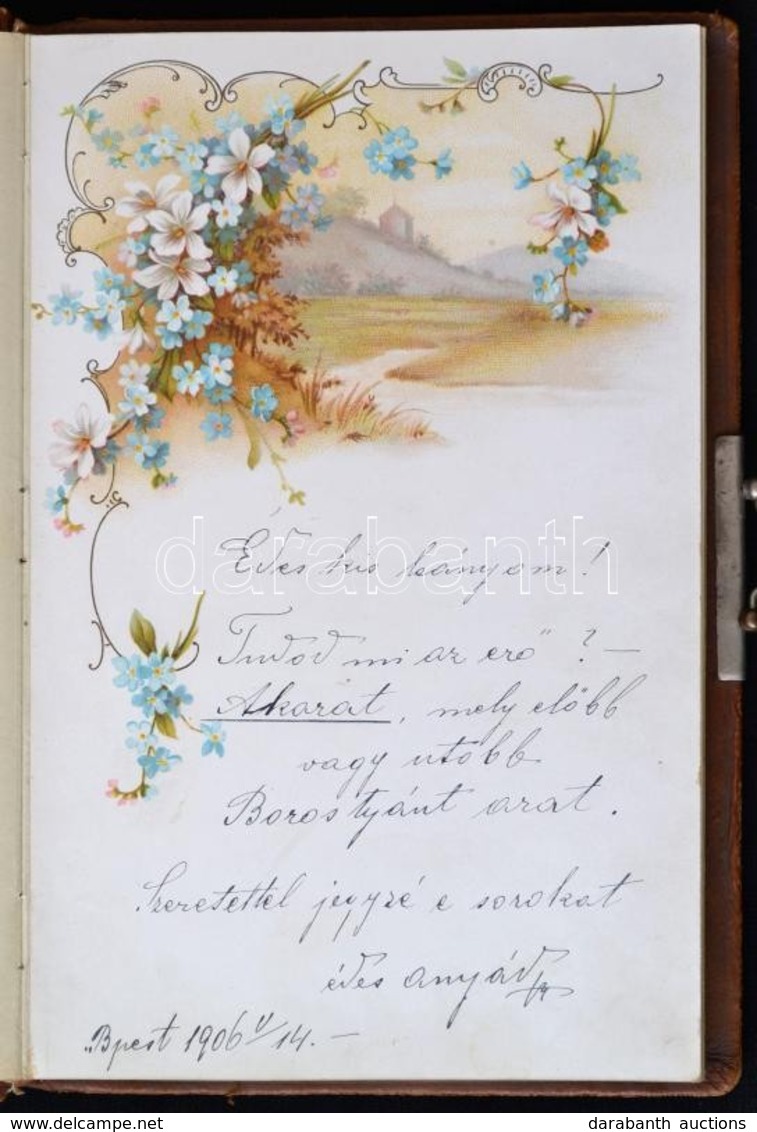 Édes kis leányom!
Tudod mi az erő"? —
Akarat, mely előbb
vagy utóbb
Borostyánt arat.
Szeretettel jegyzé e sorokat
édes anyád
Bpest 1906 V/14. —
darabanth
© www.delcampe.net
darabanth auctions